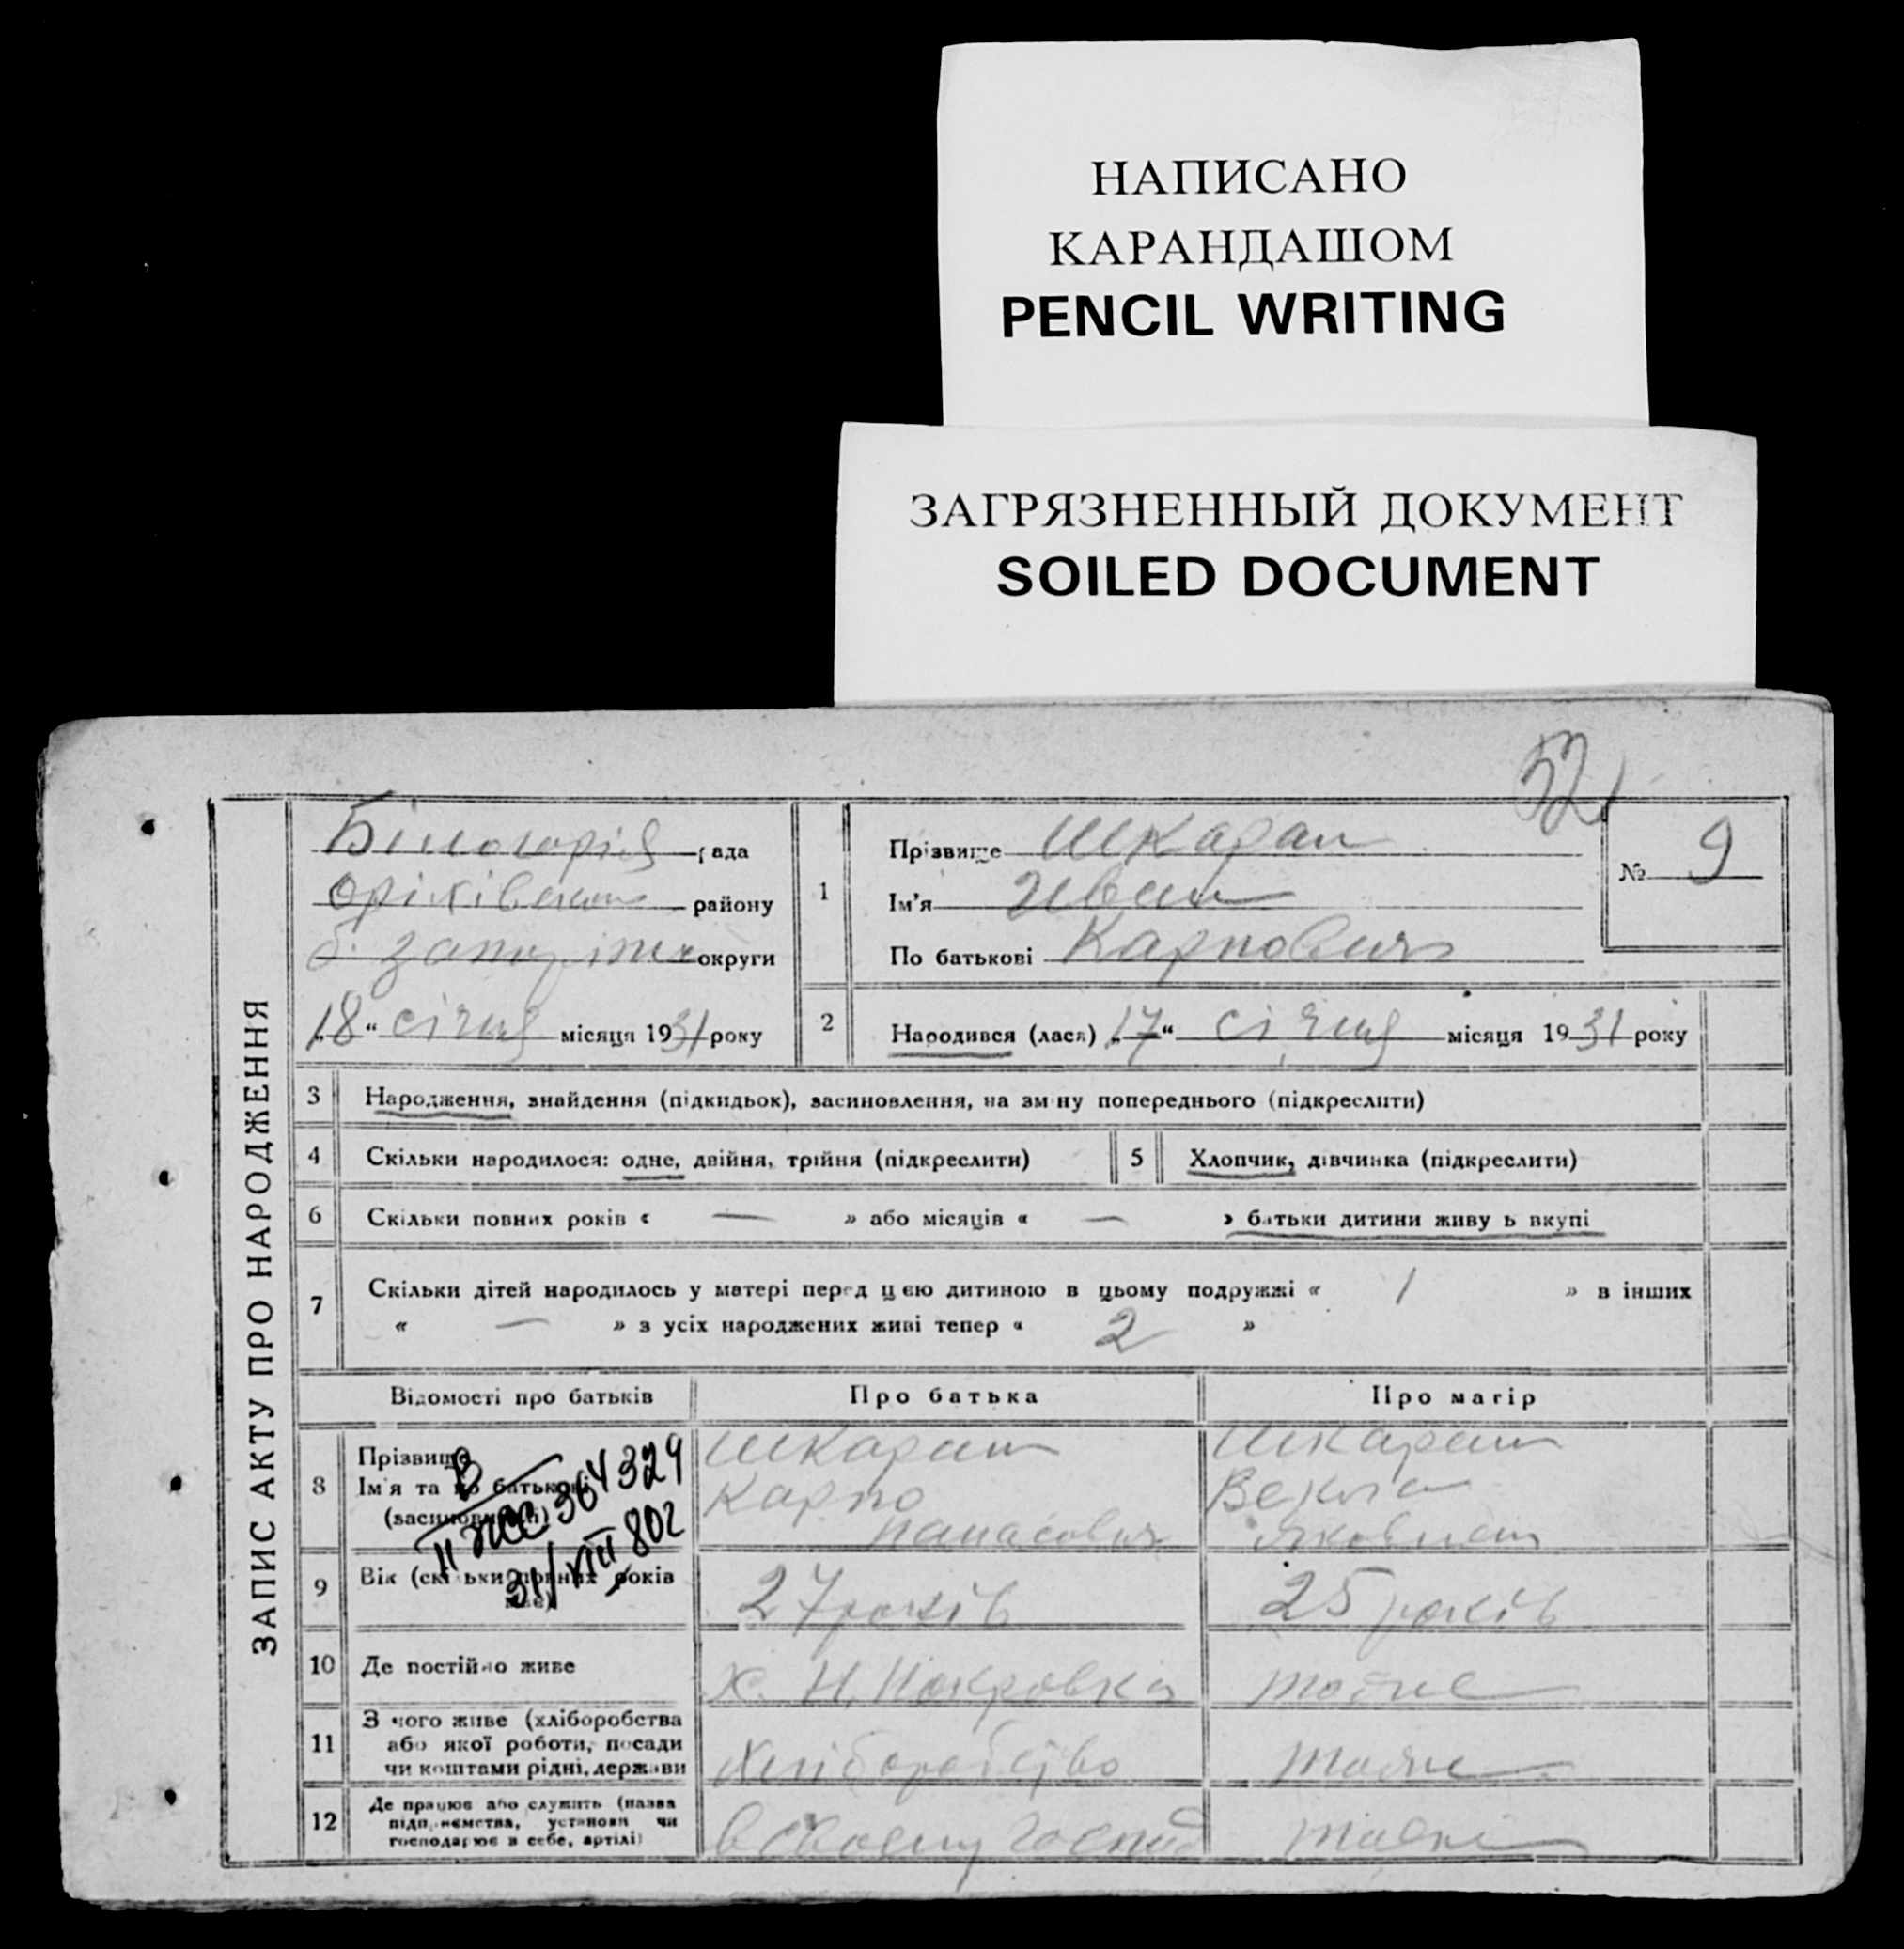 НАПИСАНО
КАРАНДАШОМ
PENCIL WRITING
ЗАГРЯЗНЕННЫЙ ДОКУМЕНТ
SOILED DOCUMENT
52
ЗАПИС АКТУ ПРО НАРОДЖЕННЯ
рада
району
округи
„18“ січня місяця 1931 року
1
Прізвище
Ім'я Иван
По батькові Карпович
№ 9
2
Народився (лася) „17“ січня місяця 1931 року
3 Народження, знайдення (підкидьок), засиновлення, на зміну попереднього (підкреслити)
4 Скільки народилося: одне, двійня, трійня (підкреслити)
5 Хлопчик, дівчинка (підкреслити)
6 Скільки повних років « — » або місяців « — » батьки дитини живуть вкупі
7 Скільки дітей народилось у матері перед цією дитиною в цьому подружжі « 1 » в інших
« — » з усіх народжених живі тепер « 2 »
Відомості про батьків
Про батька
Про матір
8 Прізвище
Ім'я та по батькові
(засиновителі)
Карпо
Панасович
II ЖС 364329
31/VIII 802
9 Вік (скільки повних років
27 років
25 років
10 Де постійно живе
х. Н. Покровка
тоже
11 З чого живе (хліборобства
або якої роботи, посади
чи коштами рідні, держави
хліборобство
тоже
12 Де працює або служить (назва
підприємства, установи чи
господарює в себе, артілі)
в своему господ